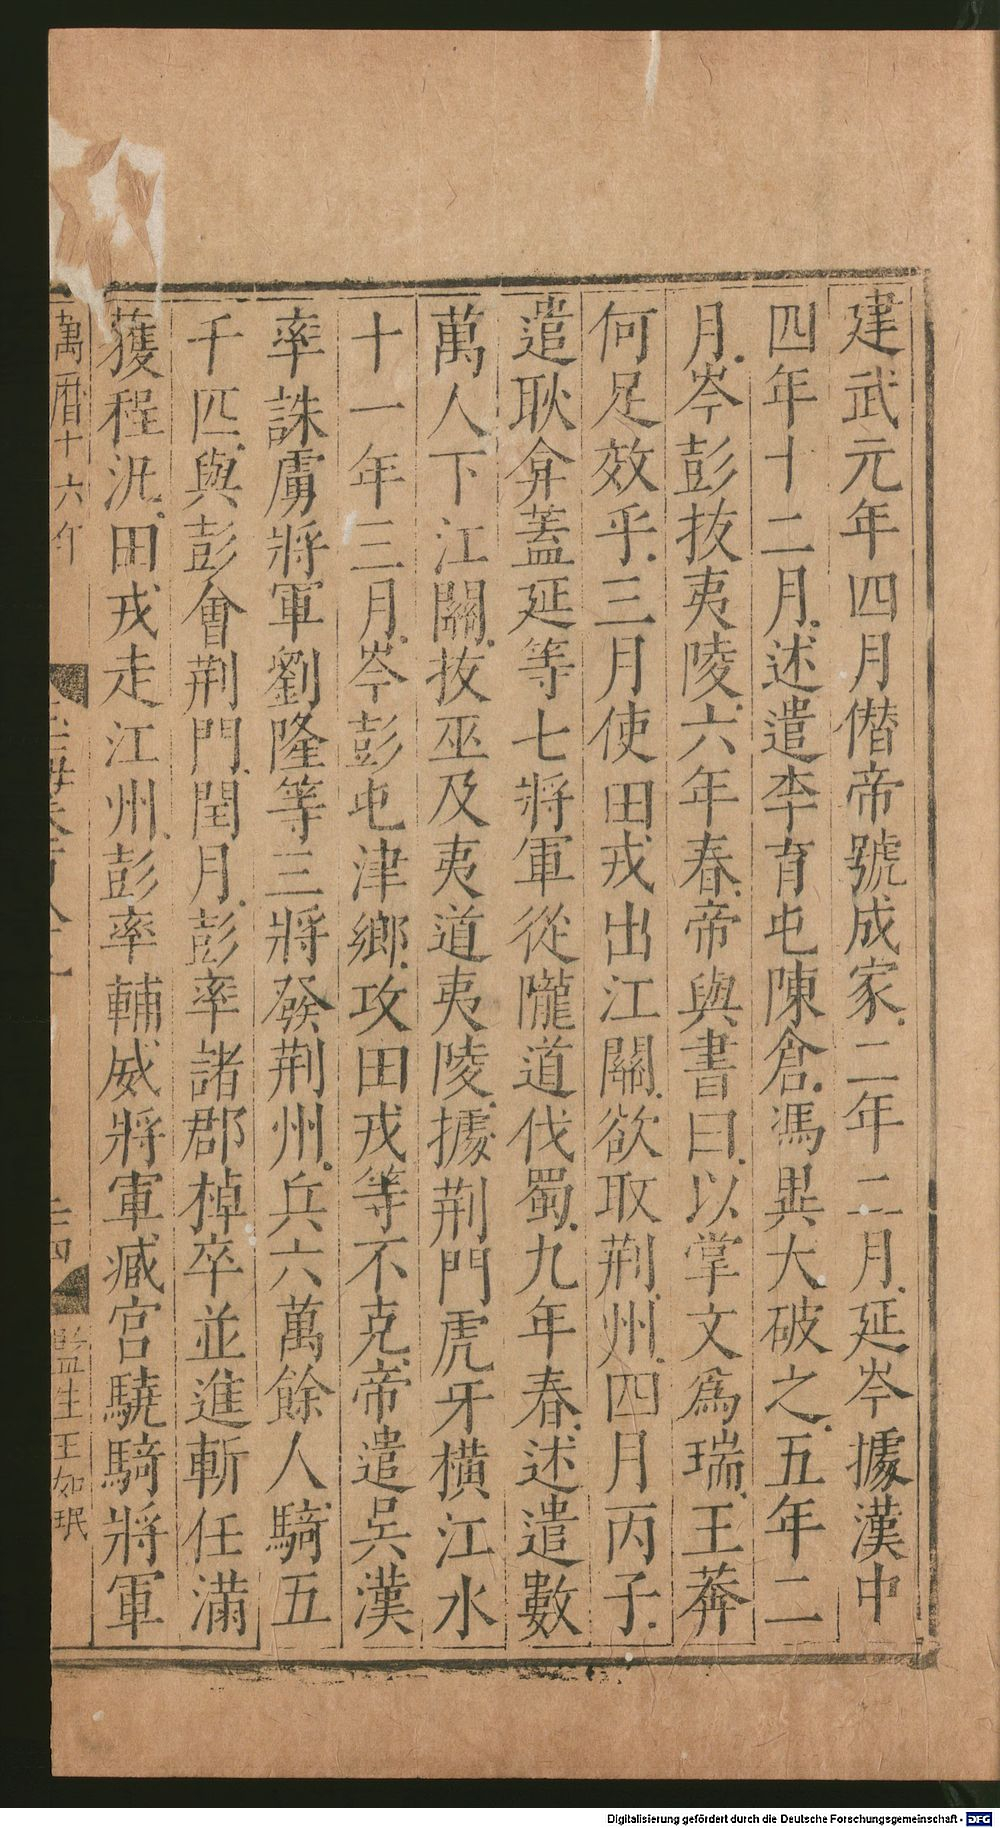 建武元年四月僣帝號成家二年二月延岑據漢中
四年十二月述遣李育屯陳倉馮異大破之五年二
月岑彭拔夷陵六年春帝與書曰以掌文爲瑞王莽
何足效乎三月使田戎出江關欲取荆州四月丙子
遣耿弇蓋延等七將軍從隴道伐蜀九年春述遣數
萬人下江關拔巫及夷道夷陵據荆門虎牙横江水
十一年三月岑彭屯津鄉攻田戎等不克帝遣吳漢
率誅虜將軍劉隆等三將發荆州兵六萬餘人騎五
千匹與彭會荆門閏月彭率諸郡棹卒並進斬任滿
獲程汎田戎走江州彭率輔威將軍臧宮驍騎將軍
萬曆十六年
監生王如珉
Digitalisierung gefördert durch die Deutsche Forschungsgemeinschaft - DFG